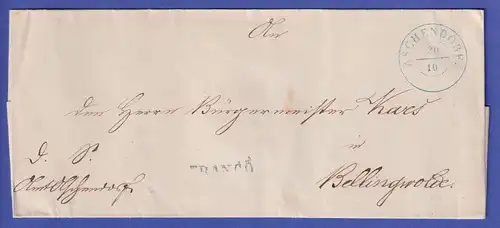 An
ASCHENDORF.
20
10
den Herrn Bürgermeister Kars
in
D. S.
Amt Aschendorf
FRANCO
Bellingwolde.